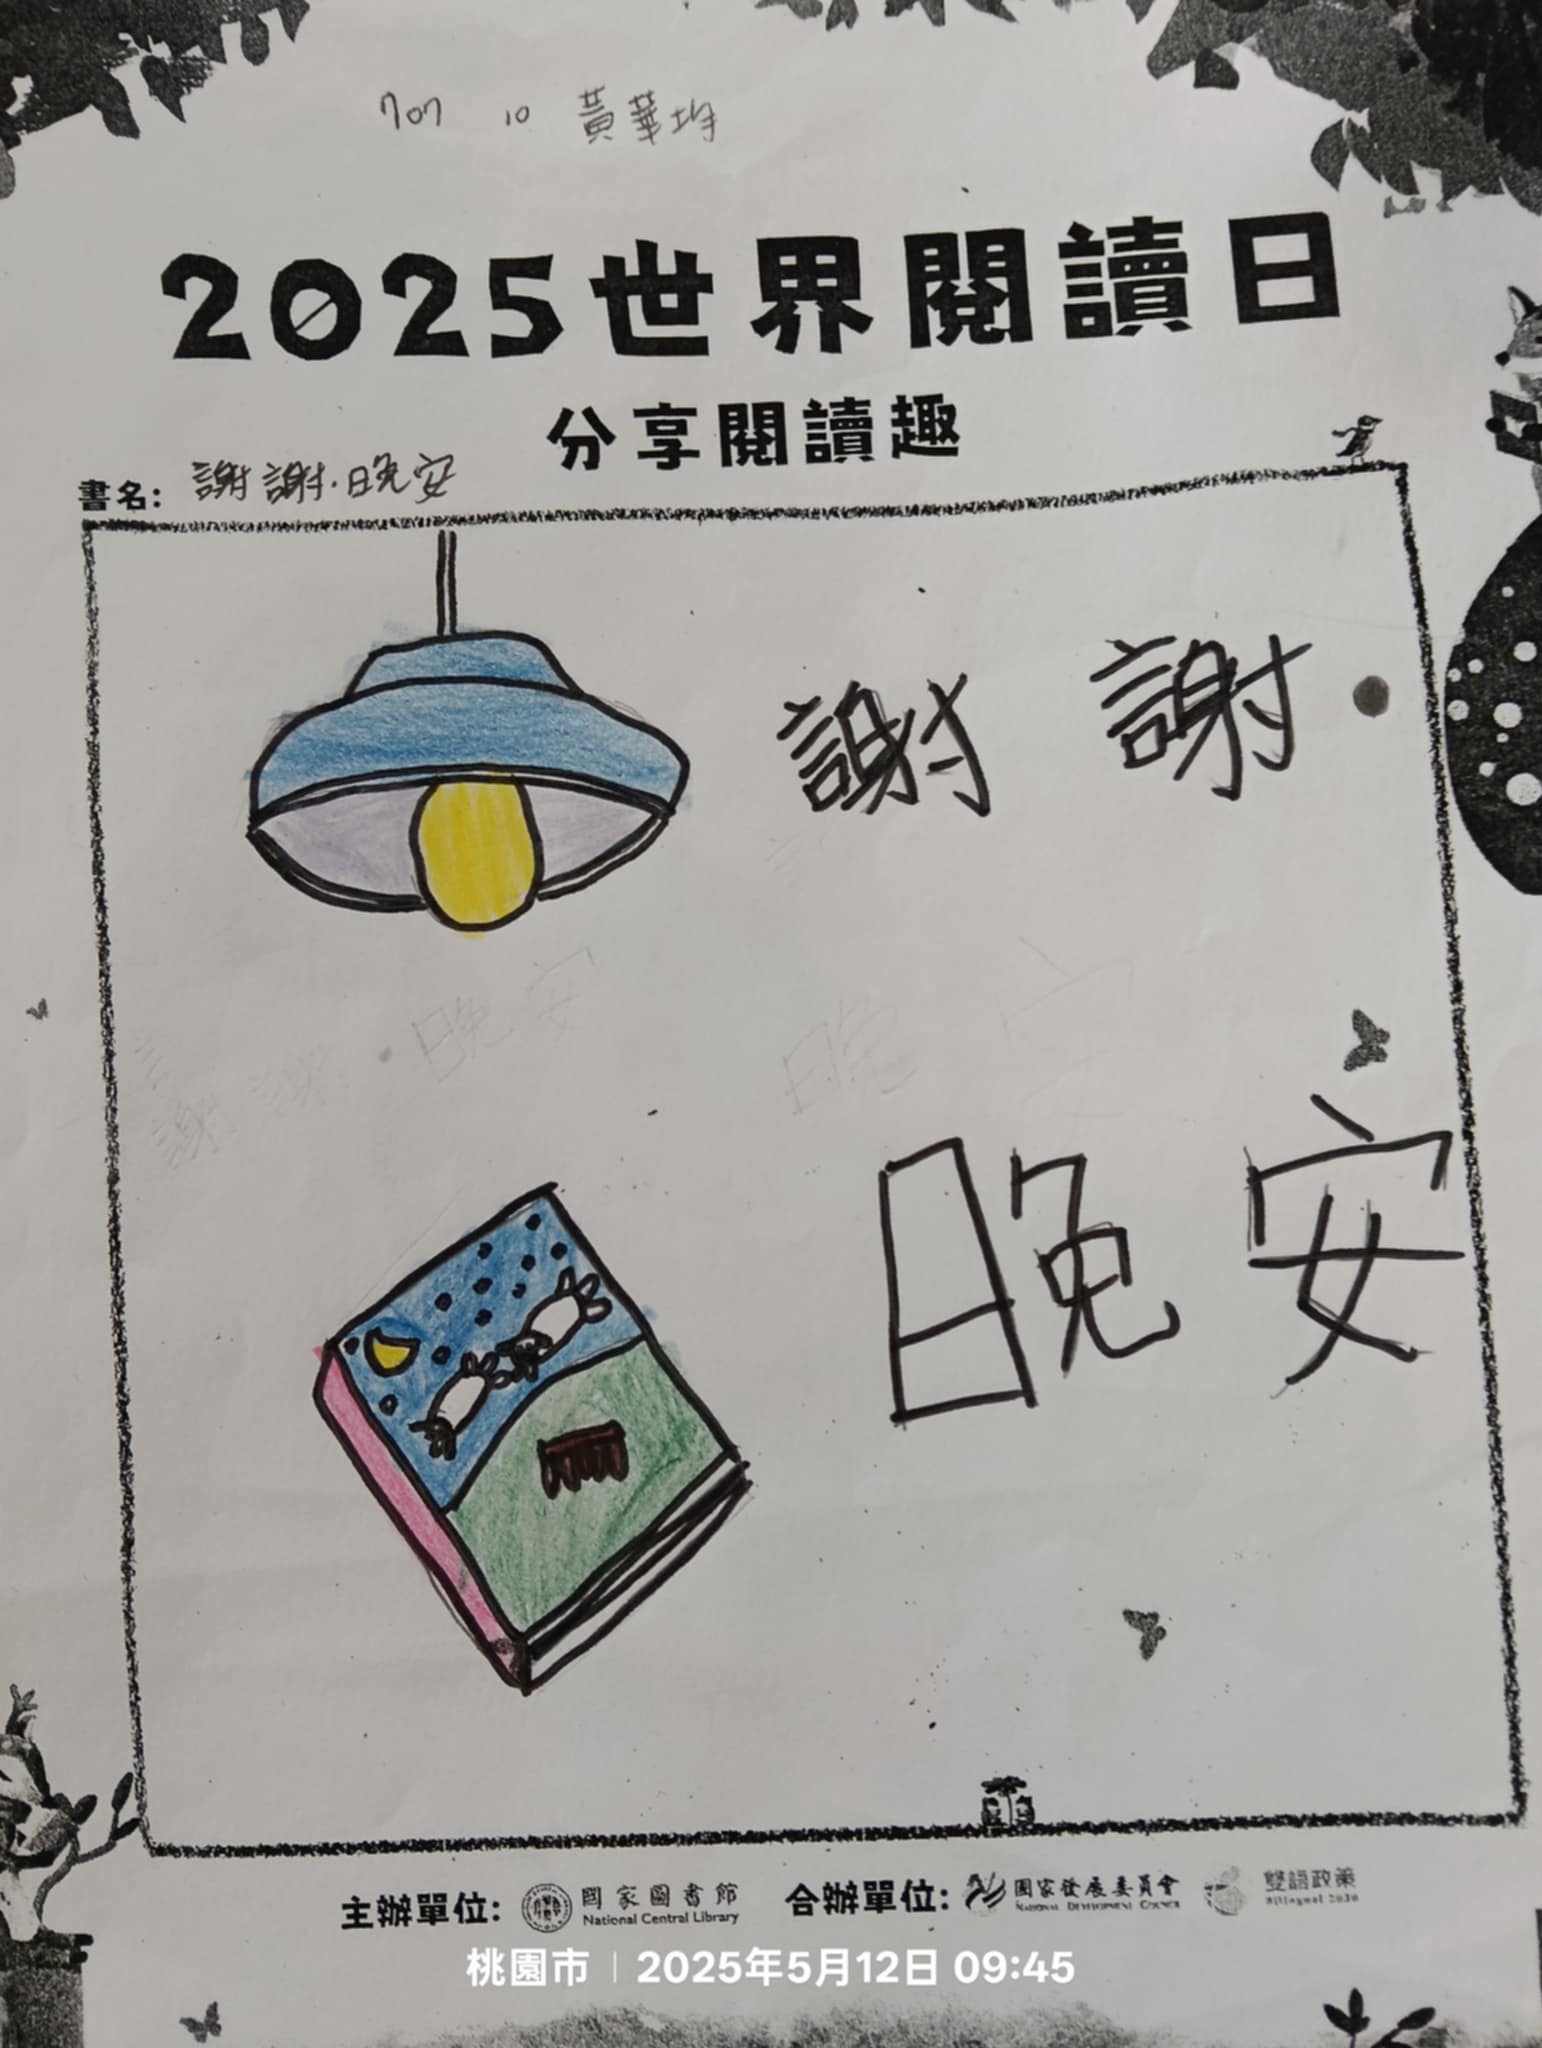 707 10 黃華均
2025世界閱讀日
分享閱讀趣
書名: 謝謝·晚安
謝謝·
謝謝·晚安
晚安
晚安
主辦單位: 國家圖書館 National Central Library 合辦單位: 國家發展委員會 NATIONAL DEVELOPMENT COUNCIL 雙語政策 Bilingual 2030
桃園市 | 2025年5月12日 09:45